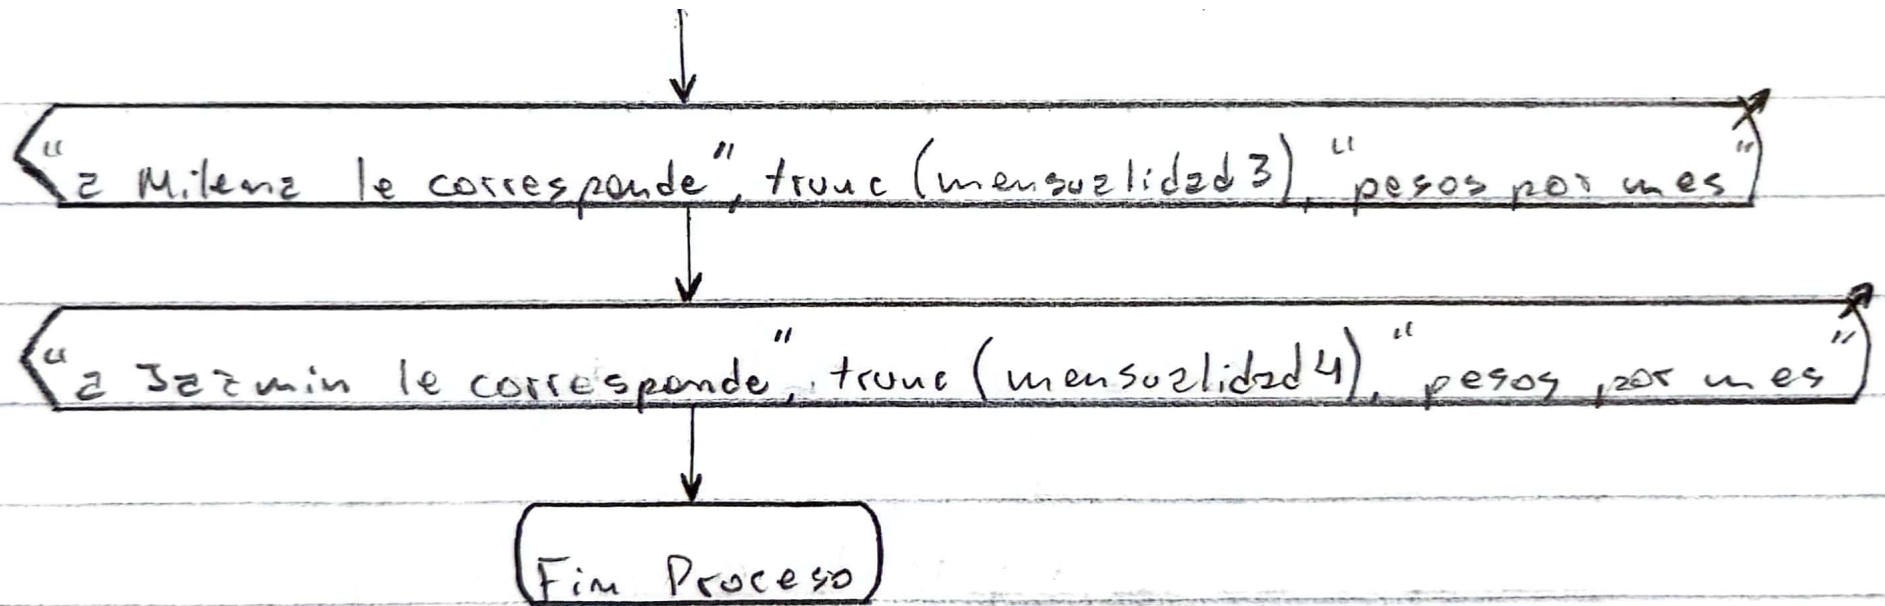 "a Milena le corresponde", trunc(mensualidad3), "pesos por mes"
"a Jazmin le corresponde", trunc(mensualidad4), "pesos por mes"
Fin Proceso